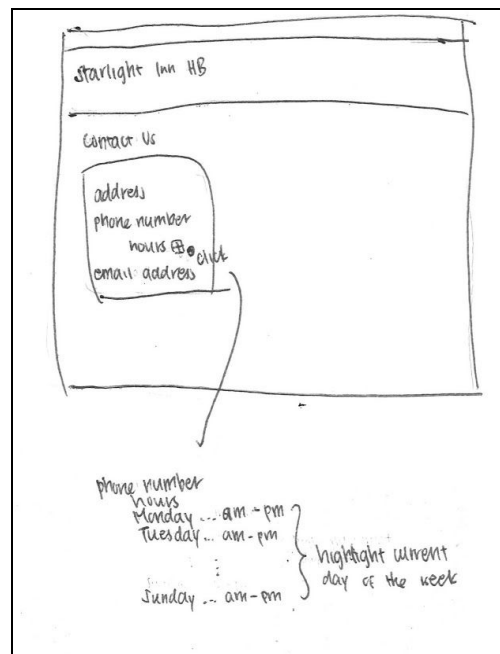 Starlight Inn HB
Contact Us
address
phone number
hours
click
email address
phone number
hours
Monday ... am-pm
Tuesday ... am-pm
Sunday ... am-pm
highlight current
day of the week